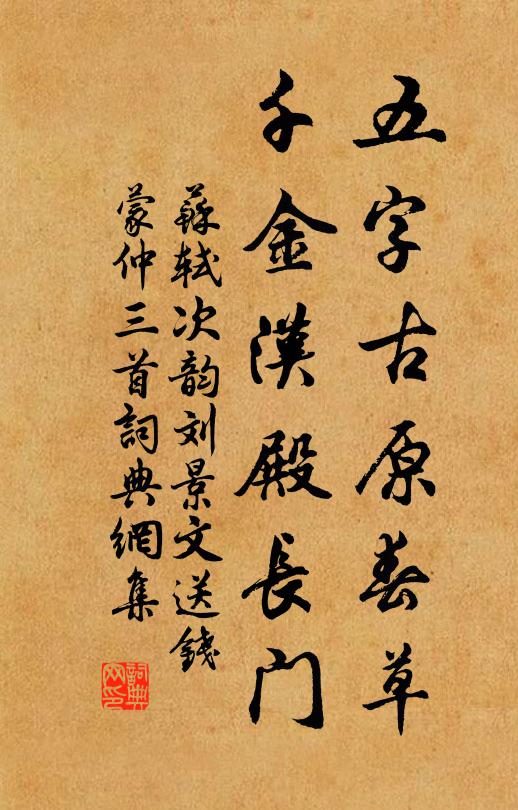 五字古原春草
千金漢殿長門
蘇軾次韵刘景文送錢
蒙仲三首詞典網集
詞典网印